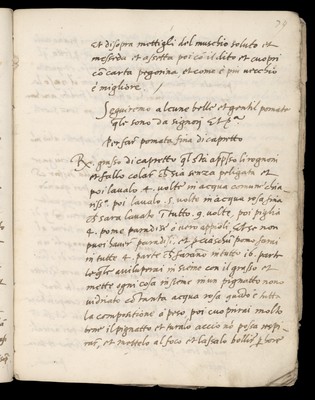 39
et disopra mettigli del muschio soluto et
mesteda et assetta poi cō il dito et cuopri
cō carta pegorina et come è piu vecchio
è migliore /
Seguiremo alcune belle et gentil pomate
q̄le sono da signori Et p.ª
Per far pomata fina di capretto
Rx. grasso di capretto q̄l stà appsso li rognoni
et fallo colar ch̄ sia senza pelligata et
poi lavalo 4. volte in acqua comun' chia
riss.ª poi lavalo .5. volte in acqua rosa fina
ch̄ sara lavato ī tutto .9. volte, poi piglia
4. pome paradise o nero appioli, et se non
puoi haver paradise, et p̄ ciaschū pomo farai
in tutte 4. parte ch̄ farano in tutto 16. parti
leq̄le avilupperai insieme con il grasso et
mette ogni cosa insieme in un pignatto novo
vidriato cō tanta acqua rosa quāto è tutta
la compositione o peso poi cuoprirai molto
bene il pignatto et turalo acciò nō possa respi
rar, et mettelo al foco et lassalo bollir p̄ hore